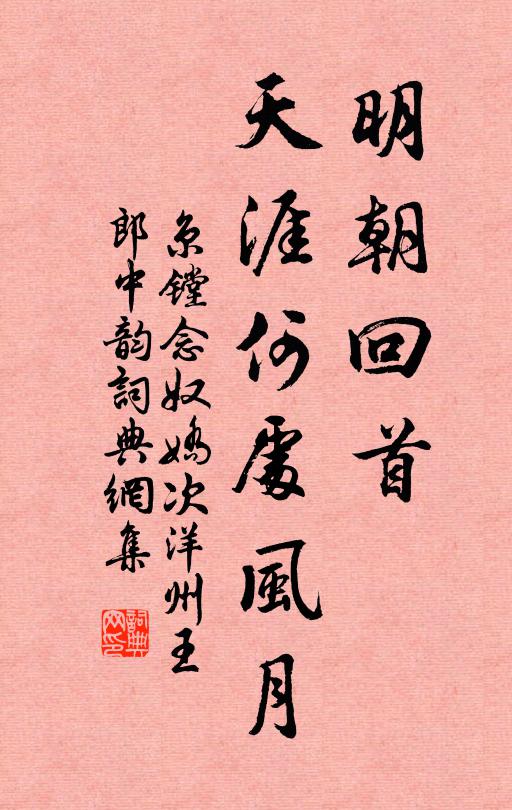 明朝回首
天涯何處風月
京鏜念奴嬌次洋州王
郎中韵詞典網集
詞典网印